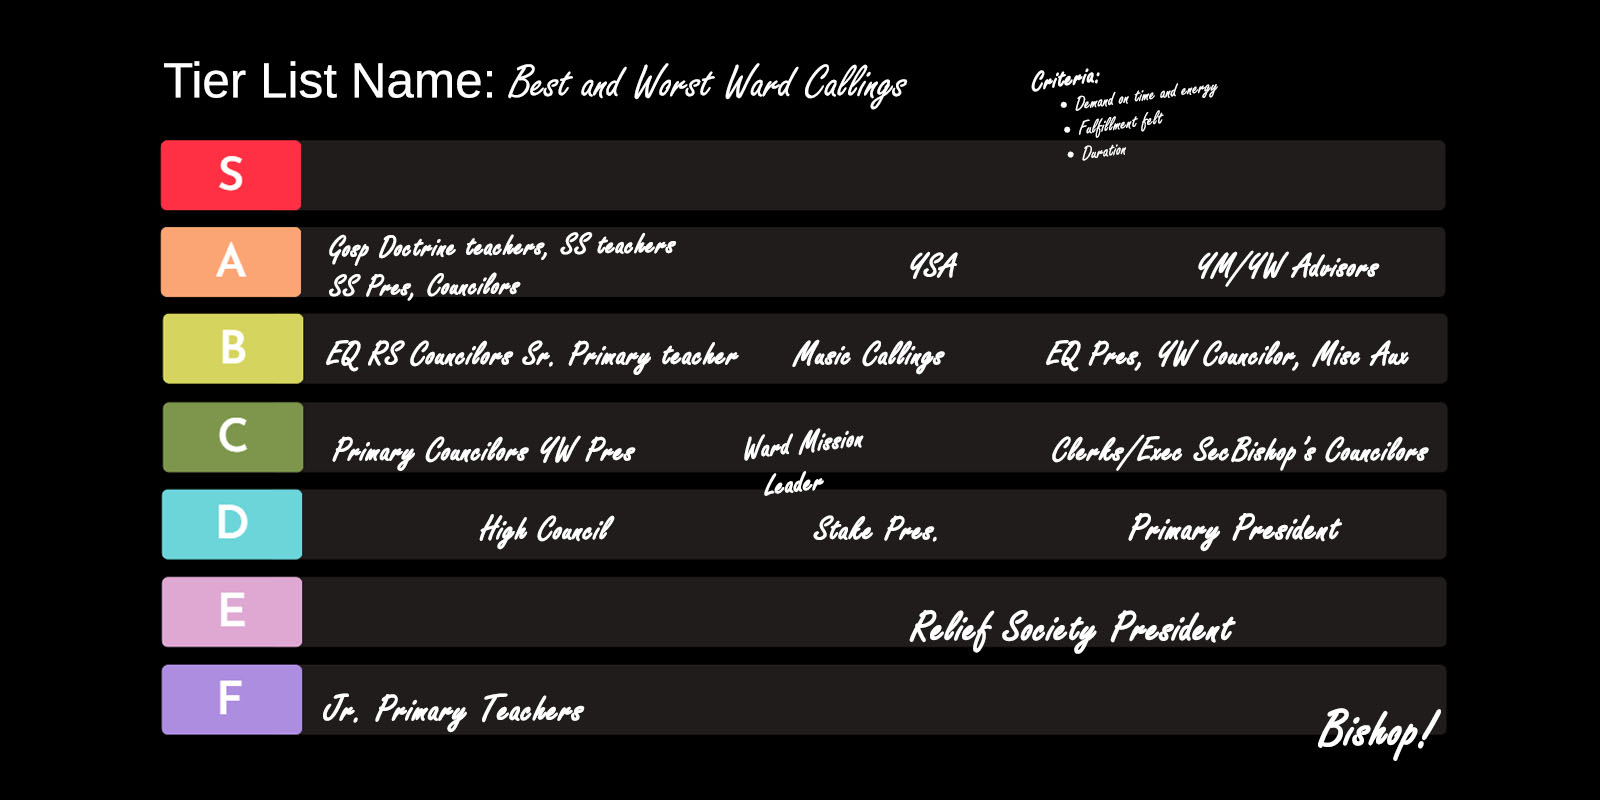 Tier List Name: Best and Worst Ward Callings
Criteria:
• Demand on time and energy
• Fulfillment felt
• Duration
S
A
Gosp Doctrine teachers, SS teachers
SS Pres, Councilors
YSA
YM/YW Advisors
B
EQ RS Councilors Sr. Primary teacher
Music Callings
EQ Pres, YW Councilor, Misc Aux
C
Primary Councilors YW Pres
Ward Mission
Leader
Clerks/Exec SecBishop's Councilors
D
High Council
Stake Pres.
Primary President
E
Relief Society President
F
Jr. Primary Teachers
Bishop!